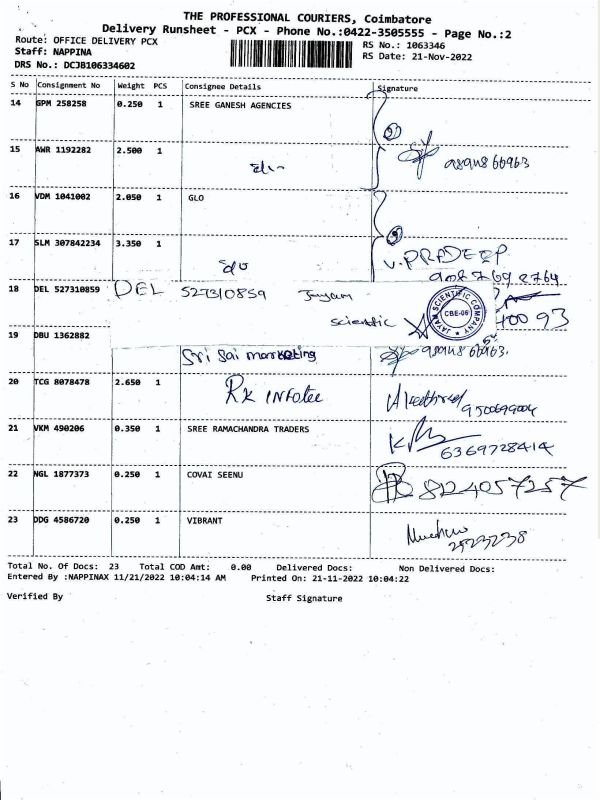 THE PROFESSIONAL COURIERS, Coimbatore
Delivery Runsheet - PCX - Phone No.:0422-3505555 - Page No.:2
Route: OFFICE DELIVERY PCX
Staff: NAPPINA
DRS No.: DCJB106334602
RS No.: 1063346
RS Date: 21-Nov-2022
S No Consignment No Weight PCS Consignee Details Signature
14 GPM 258258 0.250 1 SREE GANESH AGENCIES
15 AWR 1192282 2.500 1
9894866963
16 VDM 1041002 2.050 1 GLO
17 SLM 307842234 3.350 1
V. PRADEEP
18 DEL 527310859 DEL 527310859 Jayam
Scientific
JAYAM SCIENTIFIC COMPANY
CBE-06
10093
19 DBU 1362882
Sri Sai marketing 9894866963.
20 TCG 8078478 2.650 1 RK INFotec
21 VKM 490206 0.350 1 SREE RAMACHANDRA TRADERS
6369728414
22 NGL 1877373 0.250 1 COVAI SEENU
8124057257
23 DDG 4586720 0.250 1 VIBRANT
2523238
Total No. Of Docs: 23 Total COD Amt: 0.00 Delivered Docs: Non Delivered Docs:
Entered By :NAPPINAX 11/21/2022 10:04:14 AM Printed On: 21-11-2022 10:04:22
Verified By Staff Signature